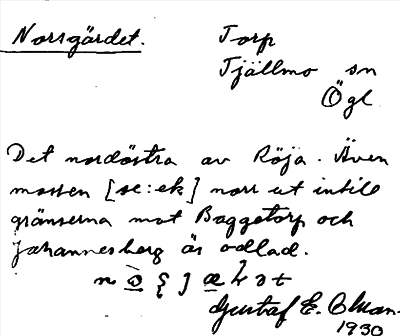 Norrgärdet.
Torp
Tjällmo sn
Ögl.
Det nordöstra av Röja. Även
mossen [se: ek] norr ut intill
gränserna mot Baggetorp och
Johannesberg är odlad.
Gustaf E.
1930